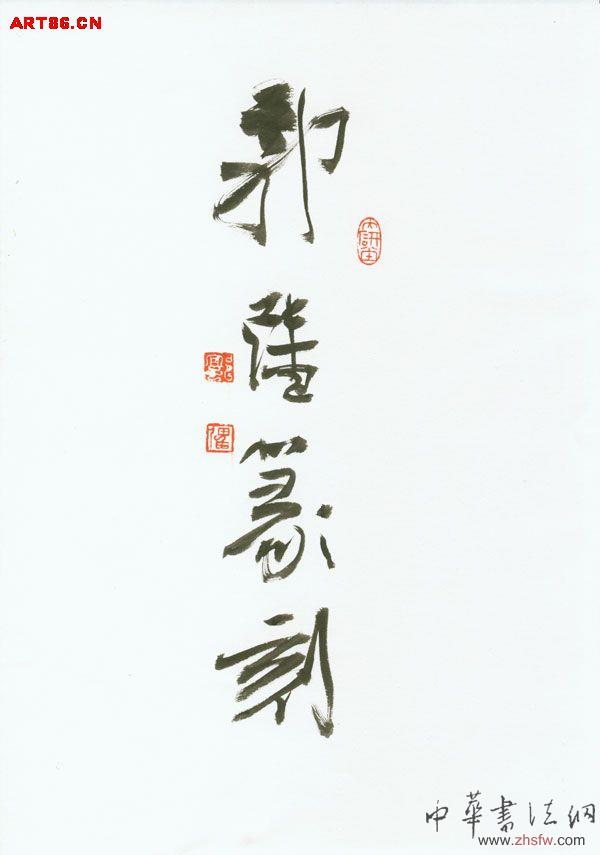 ART86.CN
郭篆刻
中華書法網
www.zhsfw.com